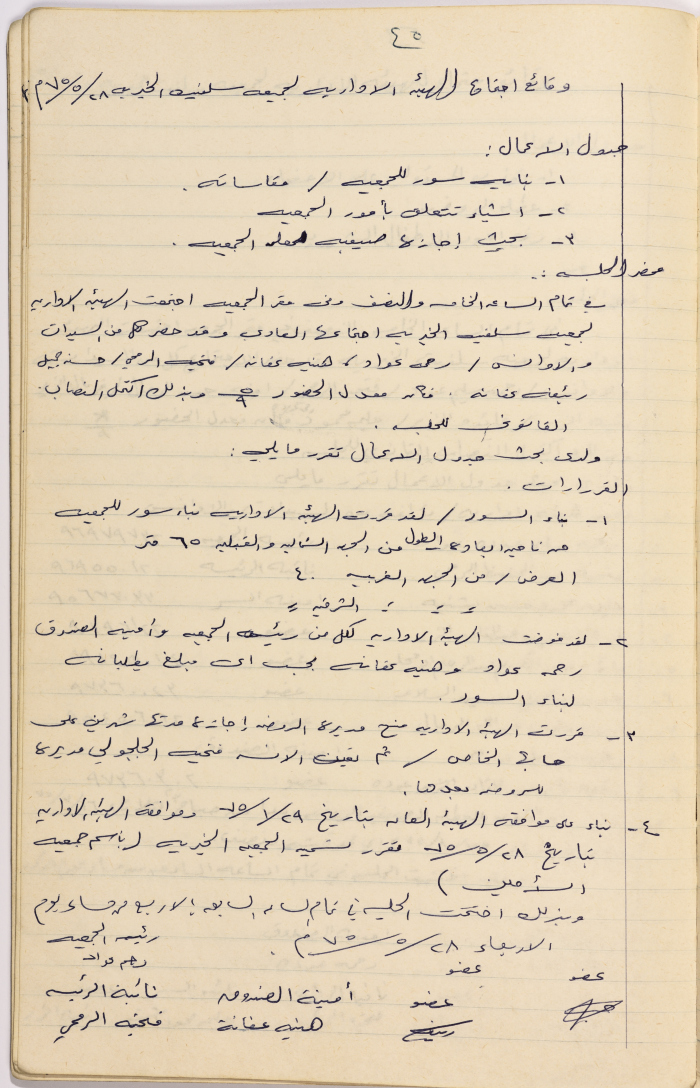 ٤٥
وقائع اجتماع الهيئة الادارية لجمعية سلفيت الخيرية ٢٨/٥/٧٥م
جدول الاعمال :
١- بناية سور للجمعية / مقاساته .
٢- اشياء تتعلق بأمور الجمعية
٣- بحث إجازة صيفية الجمعية .
محضر الجلسة :
في تمام الساعة الخامسة والنصف وفي مقر الجمعية اجتمعت الهيئة الادارية
لجمعية سلفيت الخيرية اجتماعها العادي وقد حضر كل من السيدات
والاوانس / رحمه عواد ، هنيه عفانه / فتحيه الرمحي / حسنه جميل
رئيفه عفانه . فكان معدل الحضور ٥/٩ وبذلك اكتمل النصاب
القانوني للجلسة .
ولدى بحث جدول الاعمال تقرر مايلي :
القرارات .
١- بناء السور / لقد قررت الهيئة الادارية بناء سور للجمعية
من ناحية الطول من الجهة الشمالية والقبلية ٦٥ متر
العرض / من الجهة الغربية ٤٠
= = = الشرقية =
٢- لقد فوضت الهيئة الادارية لكل من رئيسة الجمعية وأمينة الصندوق
رحمه عواد وهنيه عفانه بسحب اي مبلغ يطلبانه
لبناء السور .
٣- قررت الهيئة الادارية منح مديرة الروضه إجازة مدتها شهرين على
حسابها الخاص / ثم تعيين الانسه فتحيه الجلجولي مديرة
للروضة بعدها .
٤- بناء على موافقة الهيئة العامه بتاريخ ٢٩/١/٧٥ وموافقة الهيئة الادارية
بتاريخ ٢٨/٥/٧٥ فتقرر تسمية الجمعية الخيرية (باسم جمعية
)
وبذلك اختتمت الجلسة في تمام الساعة السابعة إلا ربع من مساء يوم
الاربعاء ٢٨/٥/٧٥م .
رئيسة الجمعية
رحمه عواد
عضو
عضو
عضو
أمينة الصندوق
هنيه عفانة
نائبة الرئيسه
فتحيه الرمحي